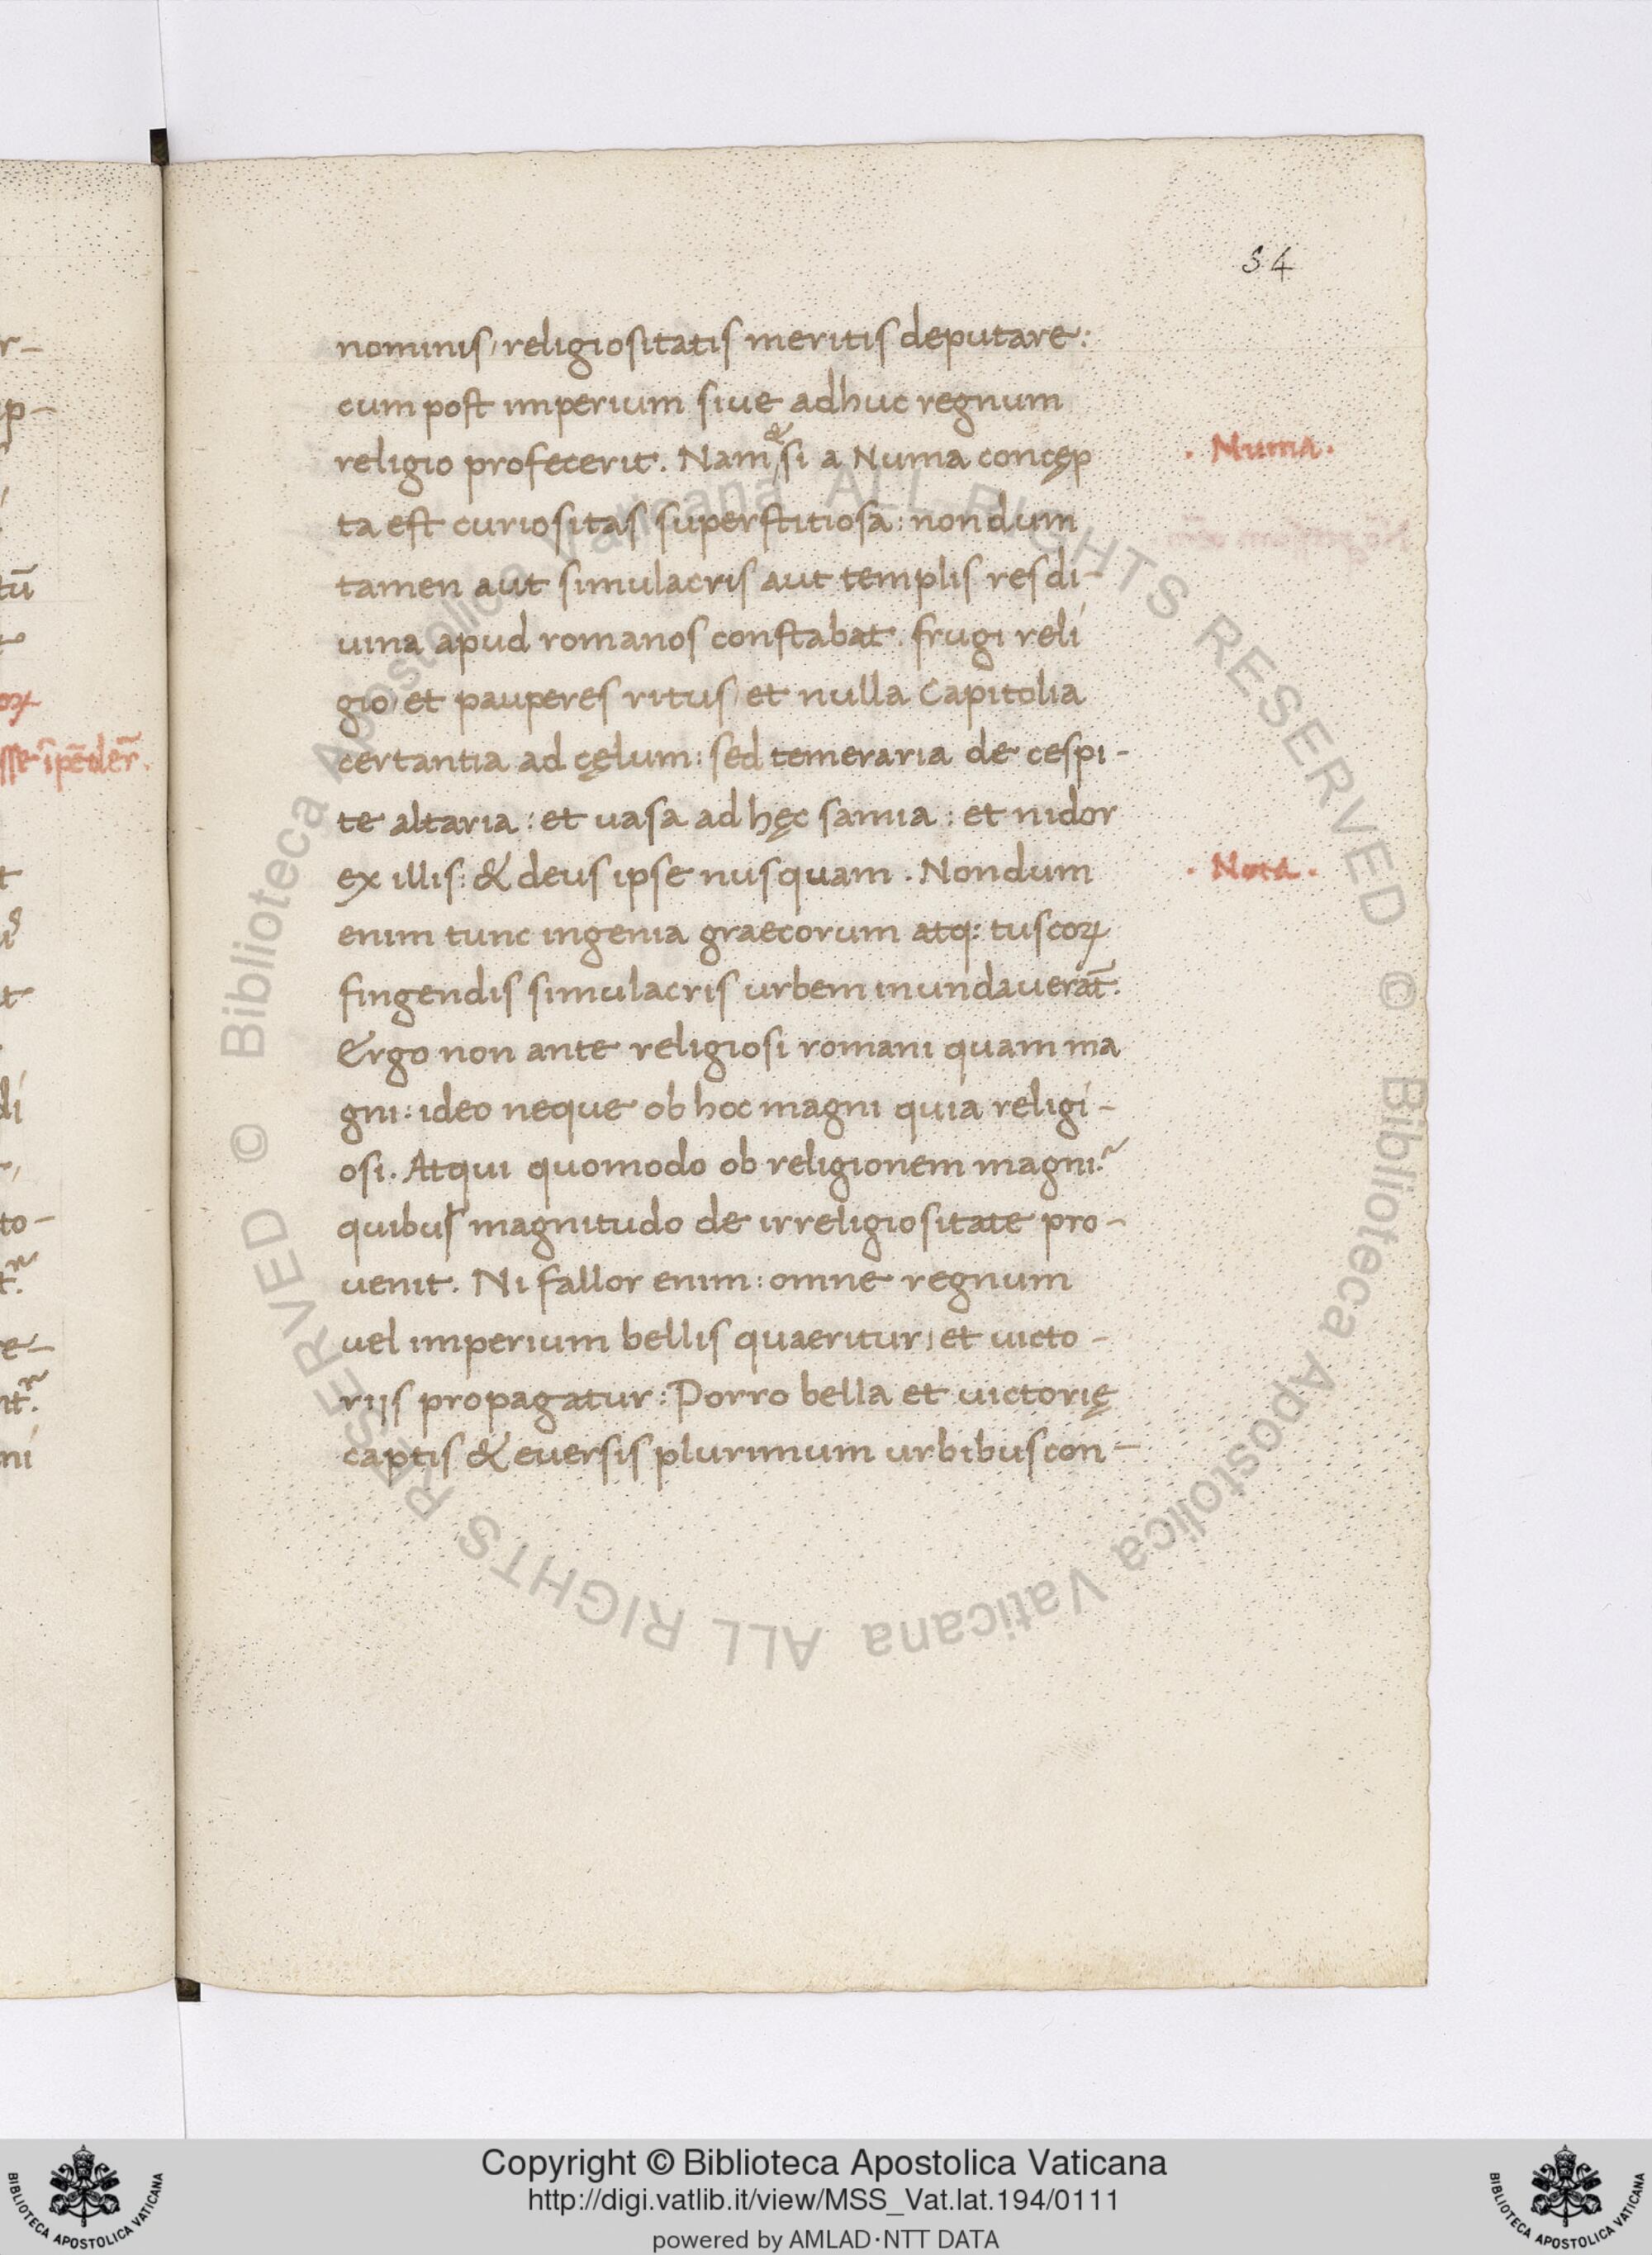 54
nominis, religiositatis meritis deputare:
cum post imperium siue adhuc regnum
religio profecerit. Nam & si a Numa concęp
ta est curiositas superstitiosa: nondum
tamen aut simulacris aut templis res di-
uina apud romanos constabat. frugi reli
gio, et pauperes ritus, et nulla Capitolia
certantia ad cęlum: sed temeraria de cespi-
te altaria: et uasa ad hęc samia: et nidor
ex illis: & deus ipse nusquam. Nondum
enim tunc ingenia graecorum atq: tuscoꝝ
fingendis simulacris urbem inundauerāt.
Ergo non ante religiosi romani quam ma
gni: ideo neque ob hoc magni quia religi-
osi. Atqui quomodo ob religionem magni?
quibus magnitudo de irreligiositate pro-
uenit. Ni fallor enim: omne regnum
uel imperium bellis quaeritur, et uicto-
rijs propagatur: Porro bella et uictorię
captis & euersis plurimum urbibus con-
. Numa.
. Nota.
Copyright © Biblioteca Apostolica Vaticana
http://digi.vatlib.it/view/MSS_Vat.lat.194/0111
powered by AMLAD·NTT DATA
BIBLIOTECA APOSTOLICA VATICANA
BIBLIOTECA APOSTOLICA VATICANA
© Biblioteca Apostolica Vaticana ALL RIGHTS RESERVED
© Biblioteca Apostolica Vaticana ALL RIGHTS RESERVED